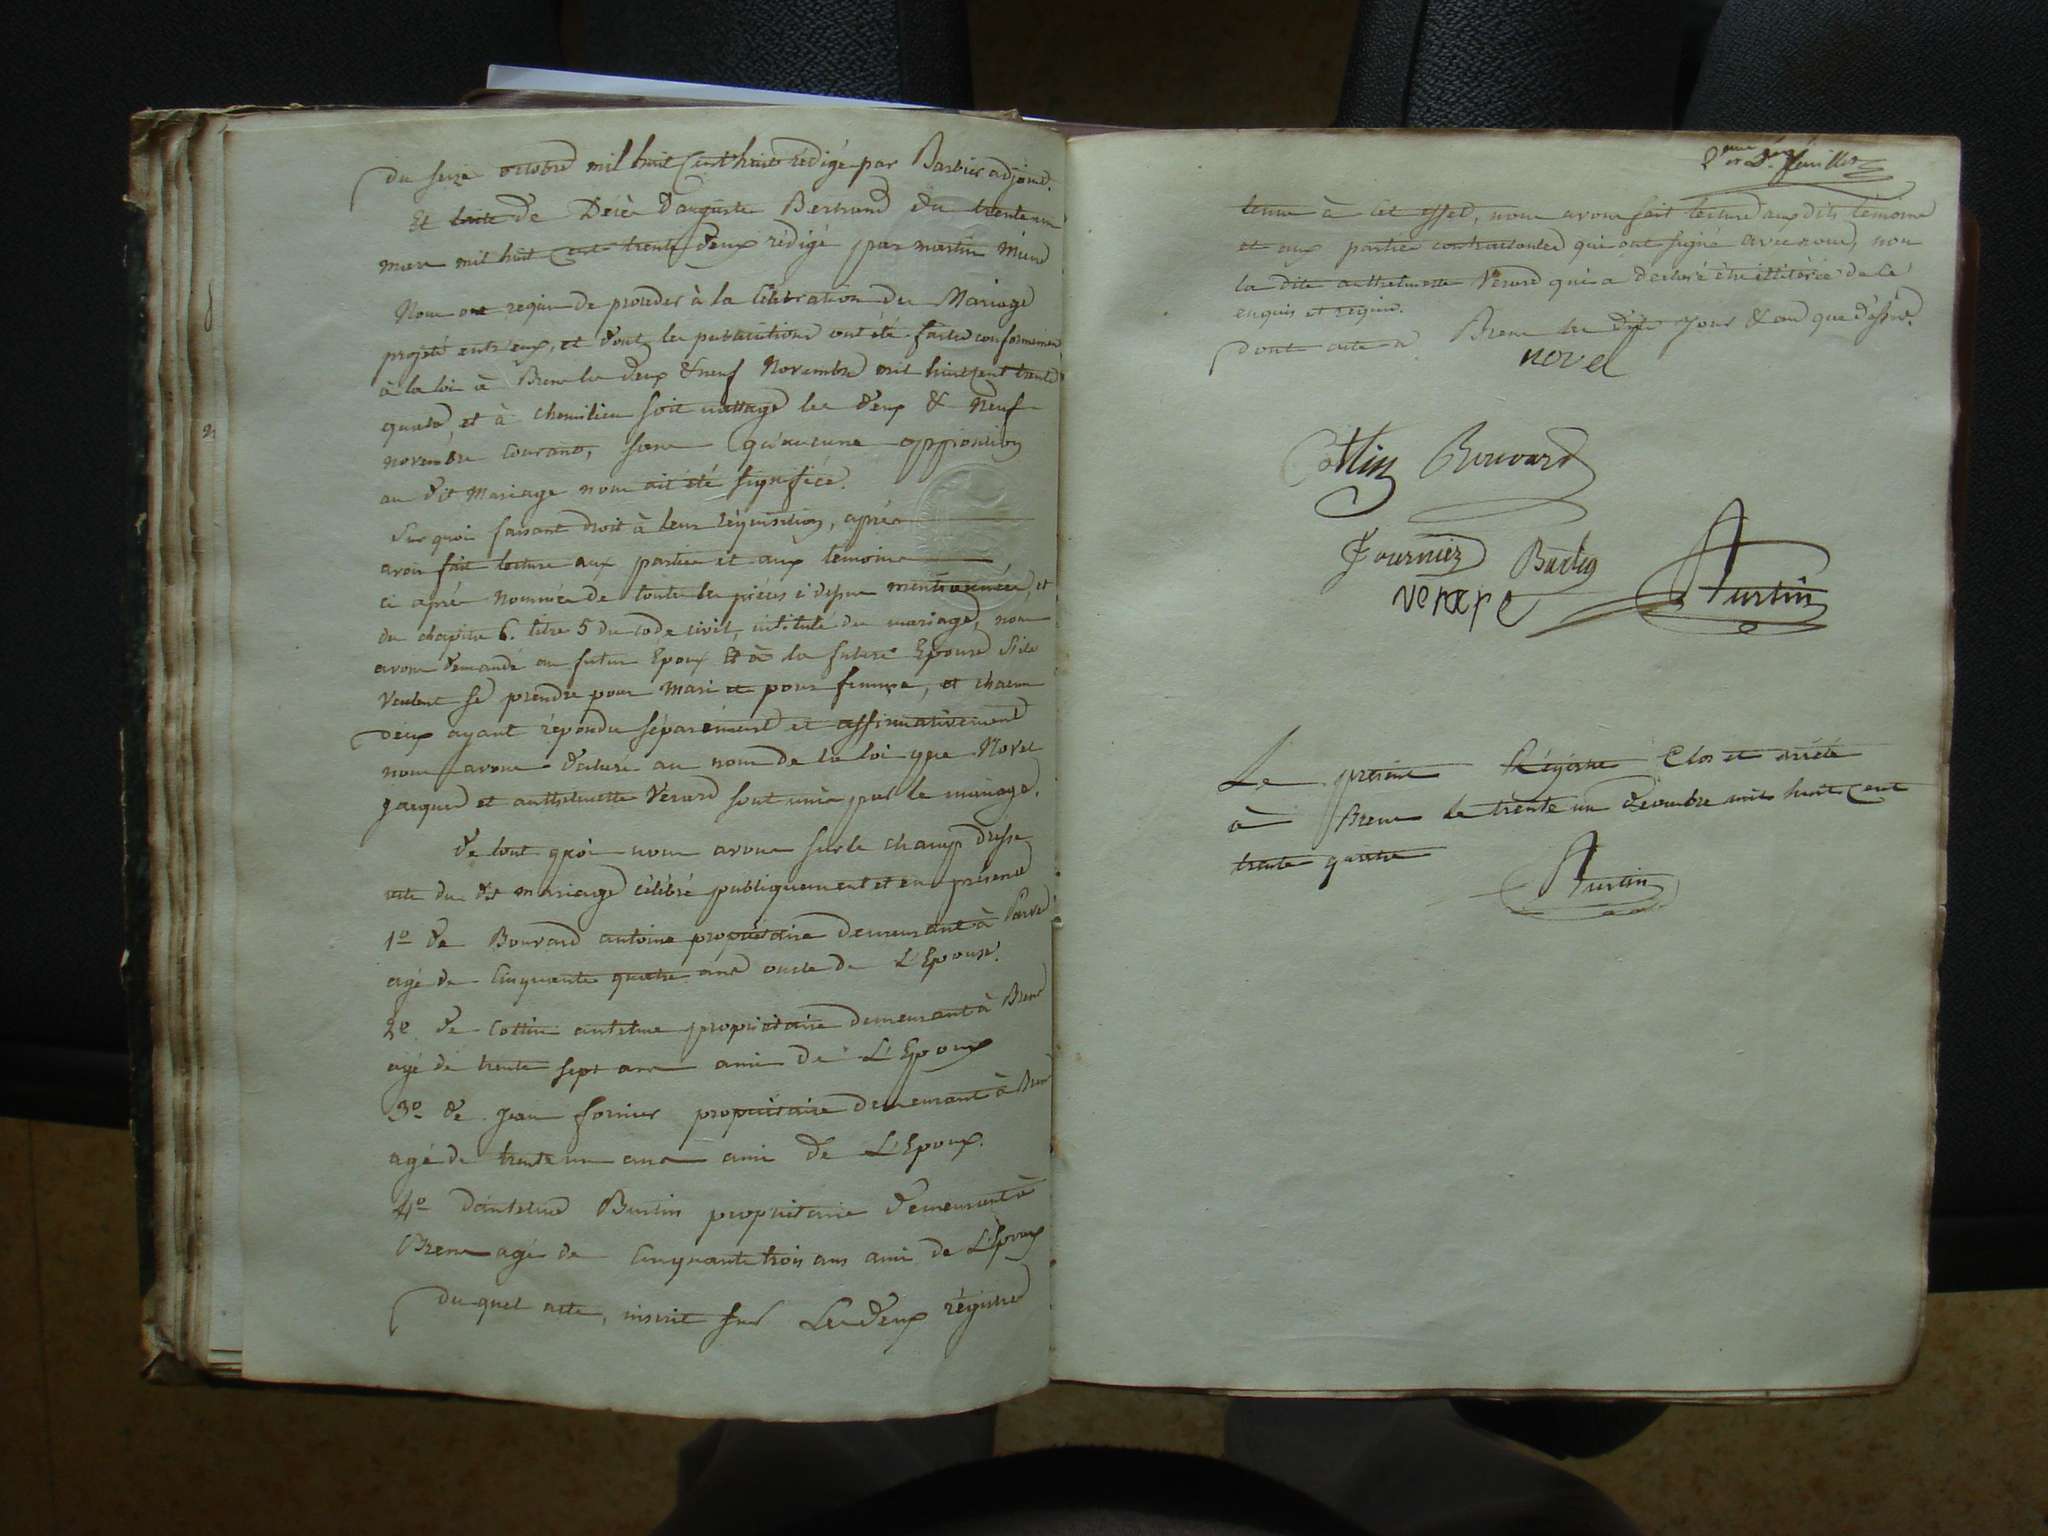 du seize octobre mil huit cent huit rédigé par Barbier adjoint.
Et de Décès d'auguste Bertrand du trente un
mars mil huit cent trente deux rédigé par martin Maire
Nous ont requis de proceder à la célébration du Mariage
projeté entr'eux, et dont les publications ont été faites conformement
à la loi à Brens les deux & neuf Novembre mil huit cent trente
quatre, et à chemilieu soit nattage les deux & Neuf
novembre courant, sans qu'aucune opposition
au dit Mariage nous ait été signifiée.
Sur quoi faisant droit à leur réquisition, après
avoir fait lecture aux parties et aux temoins
ci après nommés de toutes les pièces ci dessus mentionnées, et
du chapitre 6. titre 5 du code civil, intitulé du mariage, nous
avons demandé au futur Epoux Et à la future Epouse S'ils
veulent se prendre pour mari et pour femme, et chacun
deux ayant répondu séparément et affirmativement
nous avons déclaré au nom de la loi que Novel
Jacques et anthelmette Verard sont unis par le mariage.
de tout quoi nous avons sur le champ dressé
acte du dit mariage célébré publiquement et en présence
1º de Bouvard antoine propriétaire demeurant à Parves
agé de cinquante quatre ans oncle de L'Epouse.
2º de Cottin antelme propriétaire demeurant à Brens
agé de trente sept ans ami de L'Epoux
3º de Jean fornier propriétaire demeurant à Brens
agé de trente un ans ami de L'Epoux.
4º d'antelme Burtin propriétaire demeurant à
Brens agé de Cinquante trois ans ami de L'Epoux
du quel acte, inscrit sur Les deux régistres
2 et D. feuillet
tenus à cet effet, nous avons fait lecture aux dits temoins
et aux parties contractantes qui ont signé avec nous, non
la dite anthelmette Verard qui a déclaré être illitérée de ce
enquis et requis.
dont acte à Brens les dits jour & an que dessus.
novel
Cottin Bouvard
Fournier Burtin
verare Burtin
Le présent Régistre Clos et arrété
à Brens le trente un décembre mil huit cent
trente quatre
Burtin